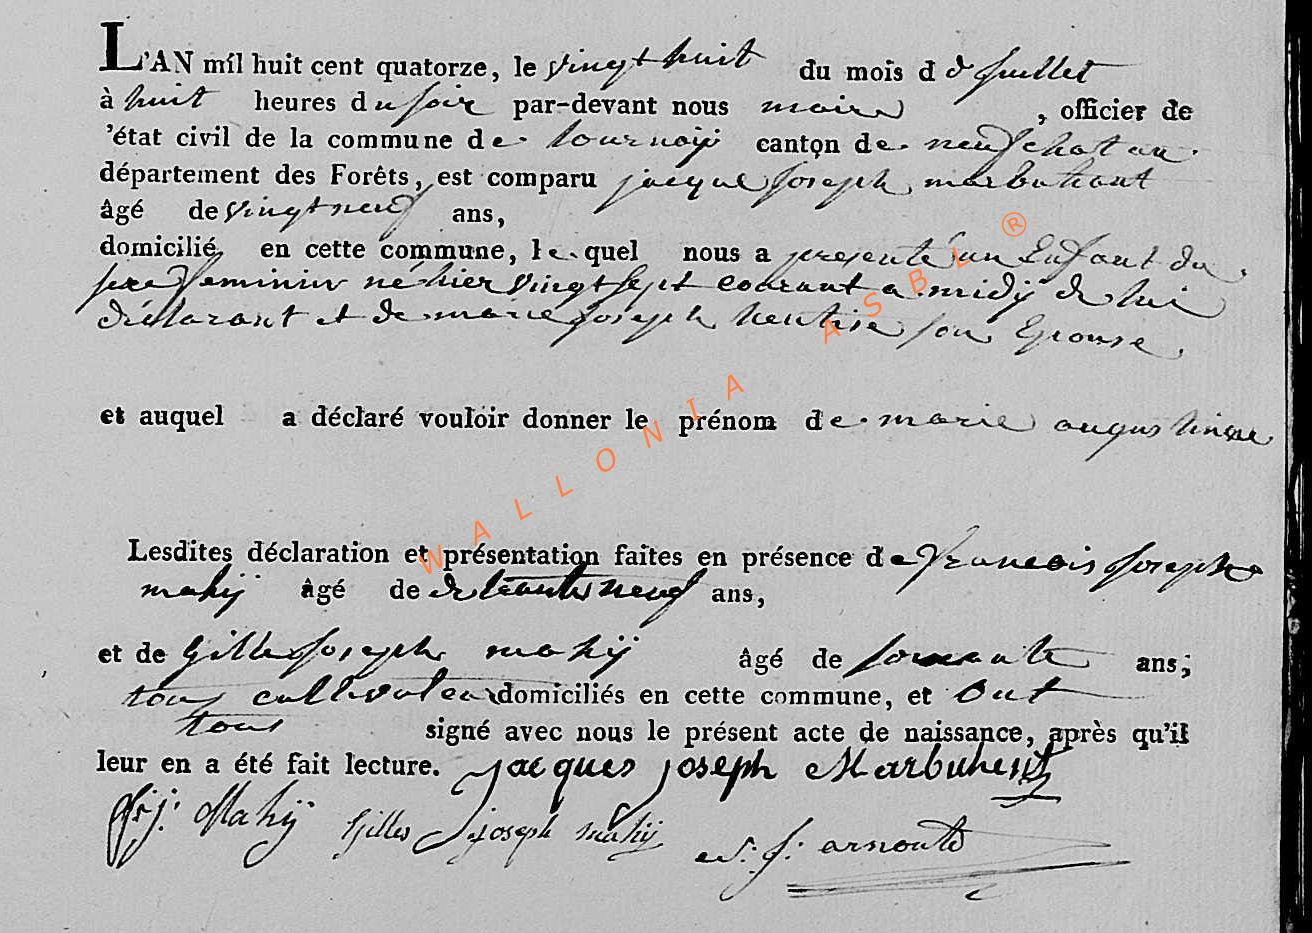 L'AN mil huit cent quatorze, le vingt huit du mois d e juillet
à huit heures du soir par-devant nous maire , officier de
'état civil de la commune de tournaÿ canton de neufchateau
département des Forêts, est comparu jacque joseph marbuhant
âgé de vingt neuf ans,
domicilié en cette commune, le quel nous a presenté un Enfant du
sexe feminin né hier vingt sept courant a midÿ de lui
déclarant et de marie joseph son Epouse
et auquel a déclaré vouloir donner le prénom de marie augustinne
Lesdites déclaration et présentation faites en présence de francois joseph
mahÿ âgé de de trente neuf ans,
et de Gille joseph mahÿ âgé de ans;
tous cultivateur domiciliés en cette commune, et Ont
tous signé avec nous le présent acte de naissance, après qu'il
leur en a été fait lecture. jacques joseph Marbuhent
fr: j: Mahÿ Gilles joseph mahÿ j: arnould
WALLONIA ASBL ®